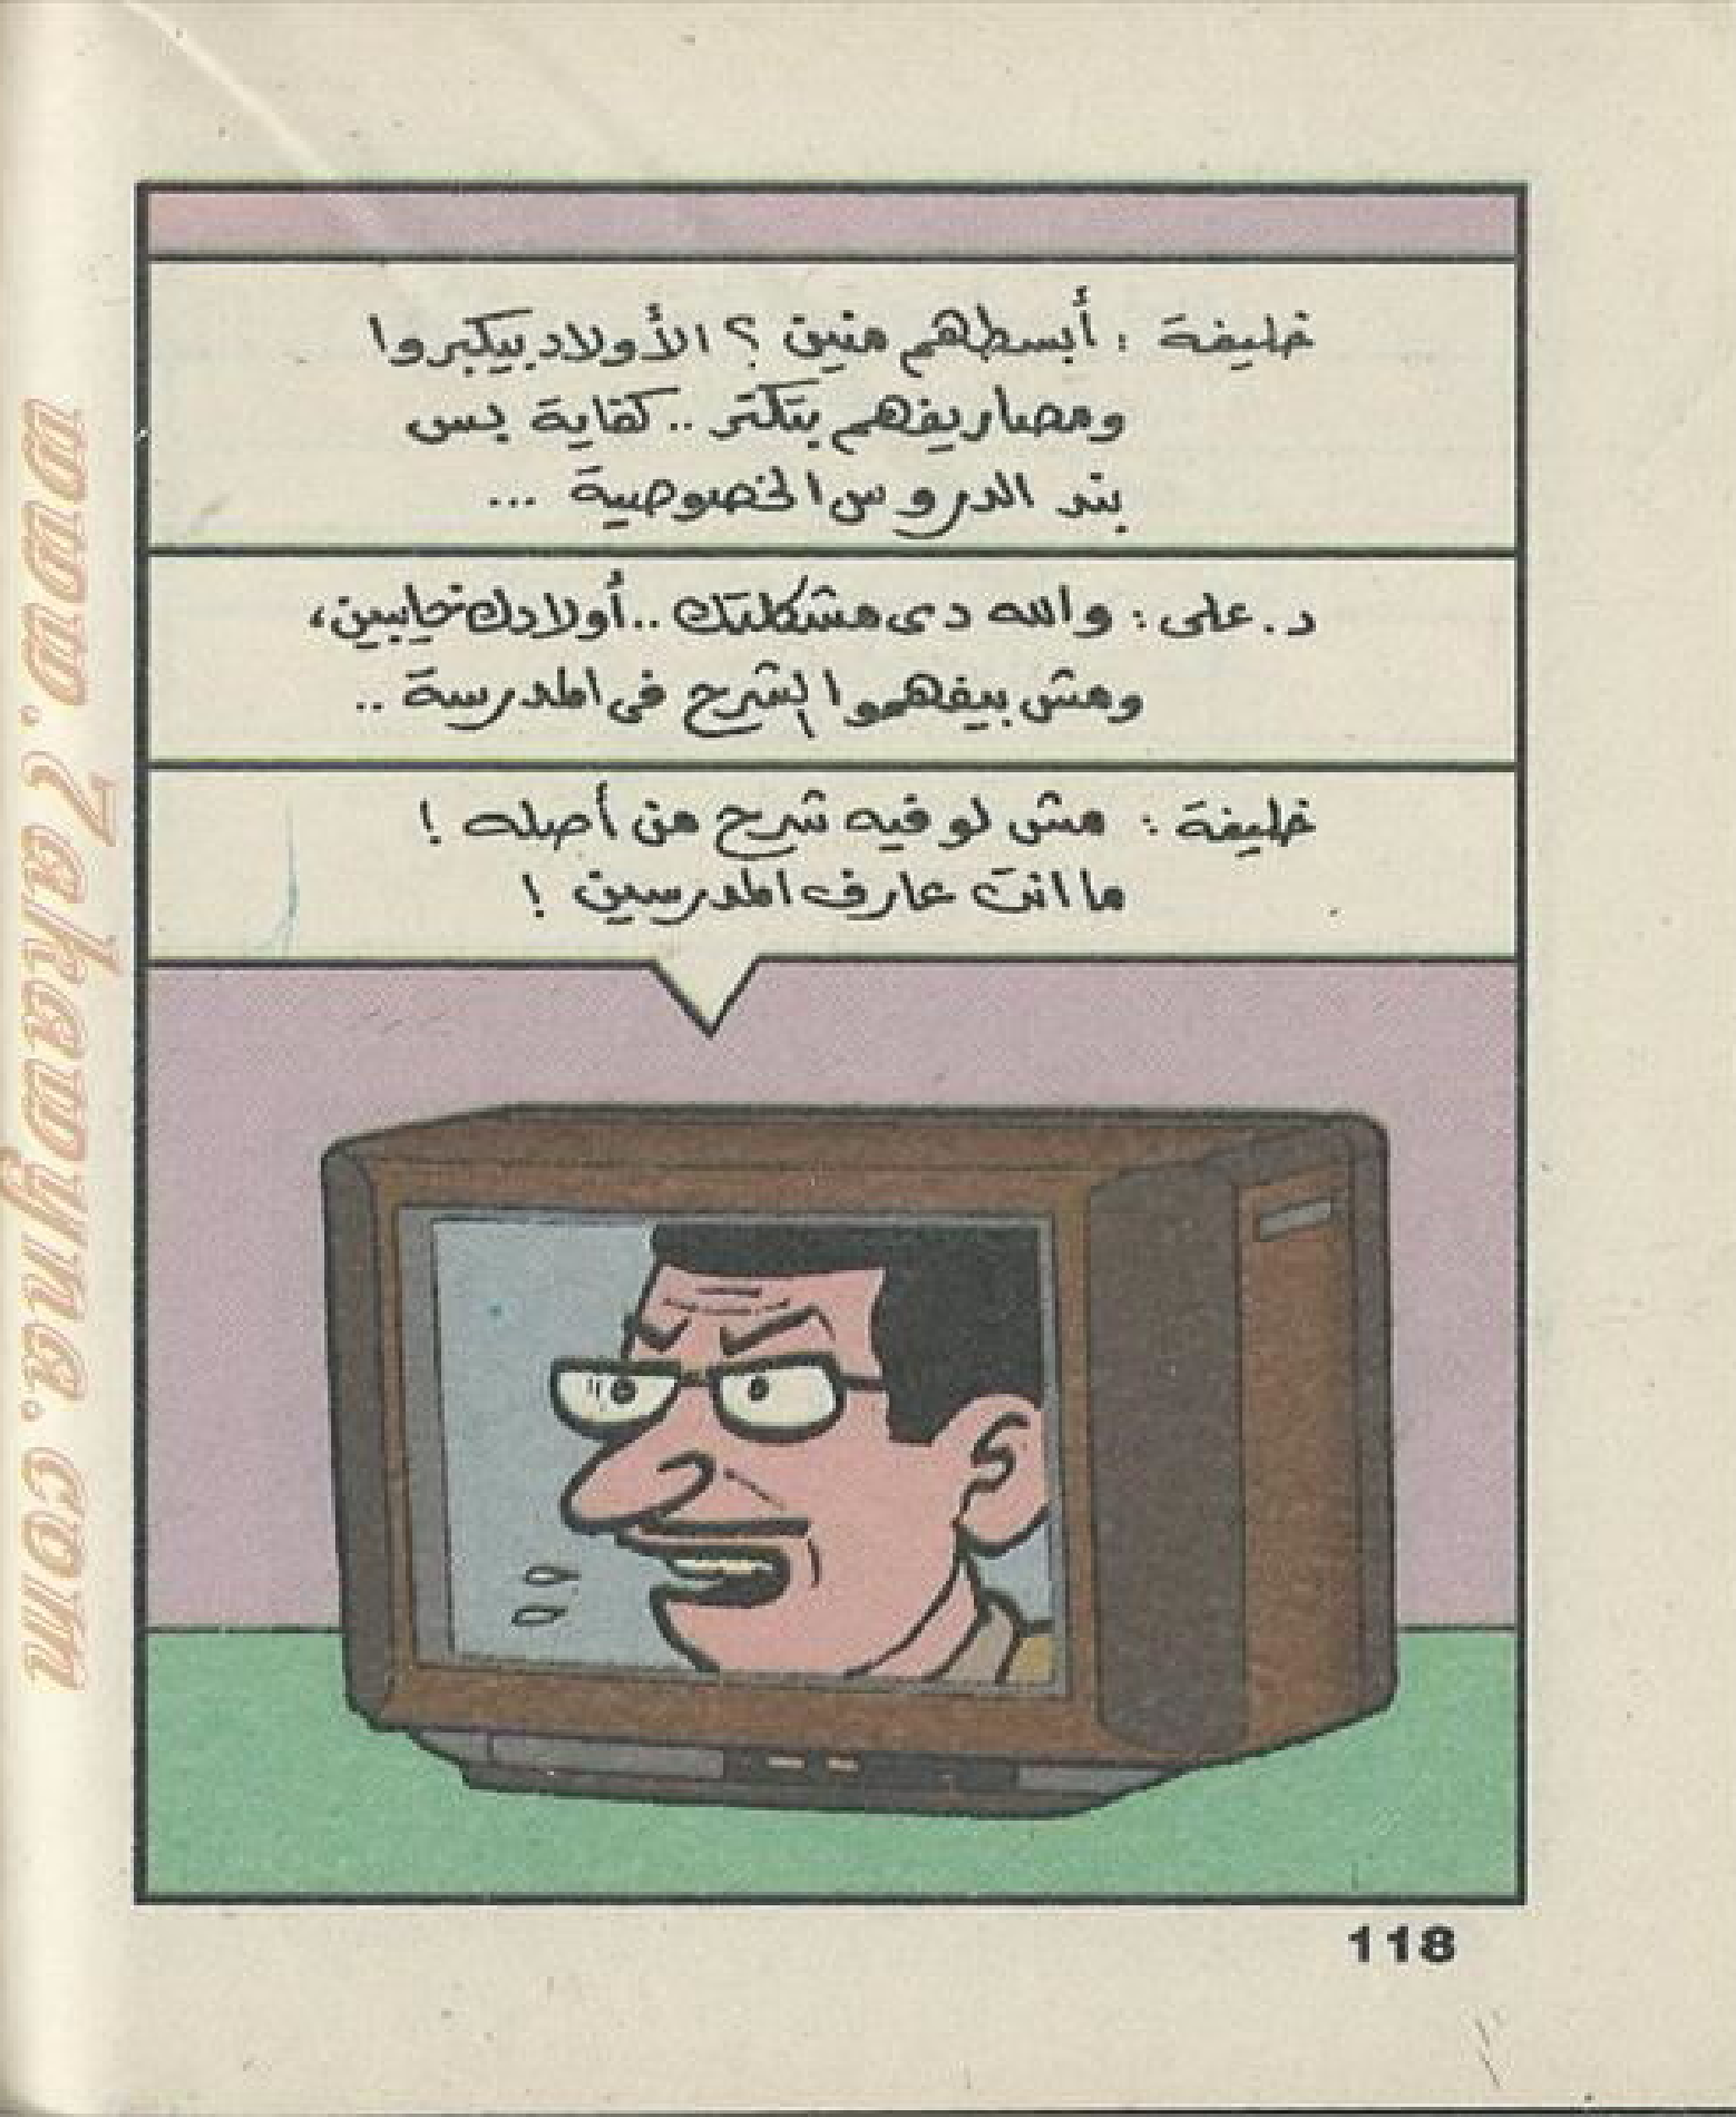 خليفة : أبسطهم منين ؟ الأولاد بيكبروا
ومصاريفهم بتكتر .. كفاية بس
بند الدروس الخصوصية ...
د . على : والله دى مشكلتك .. أولادك خايبين ،
ومش بيفهموا الشرح فى المدرسة ..
خليفة : مش لو فيه شرح من أصله !
ما انت عارف المدرسين !
118